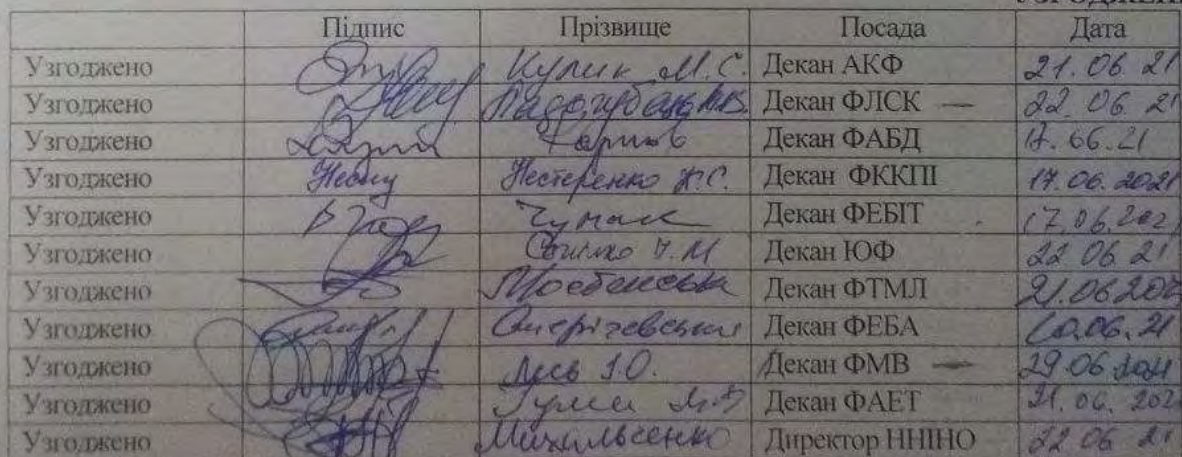 Підпис Прізвище Посада Дата
Узгоджено Кулик М.С. Декан АКФ 21.06.21
Узгоджено Декан ФЛСК — 22.06.21
Узгоджено Декан ФАБД 17.06.21
Узгоджено Нестеренко К.С. Декан ФККПІ 17.06.2021
Узгоджено Чумак Декан ФЕБІТ 17.06.202
Узгоджено Сопілко І.М Декан ЮФ 22 06 21
Узгоджено Мовбенська Декан ФТМЛ 21.06.202
Узгоджено Смерічевська Декан ФЕБА 06.21
Узгоджено Декан ФМВ — 29.06.2021
Узгоджено Декан ФАЕТ 21.06.202
Узгоджено Михальченко Директор ННІНО 22 06 21